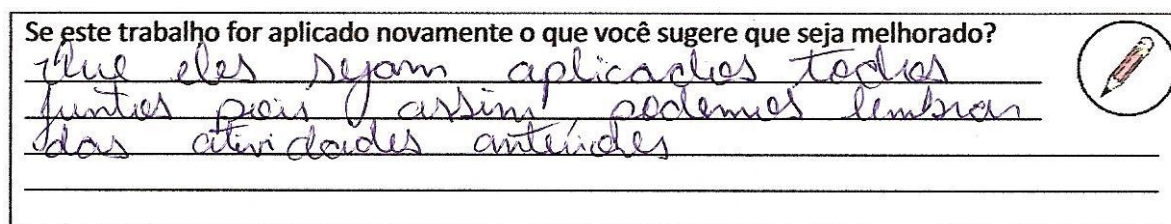 Se este trabalho for aplicado novamente o que você sugere que seja melhorado?
Que eles sejam aplicados todos
juntos pois assim podemos lembrar
das atividades anteriores